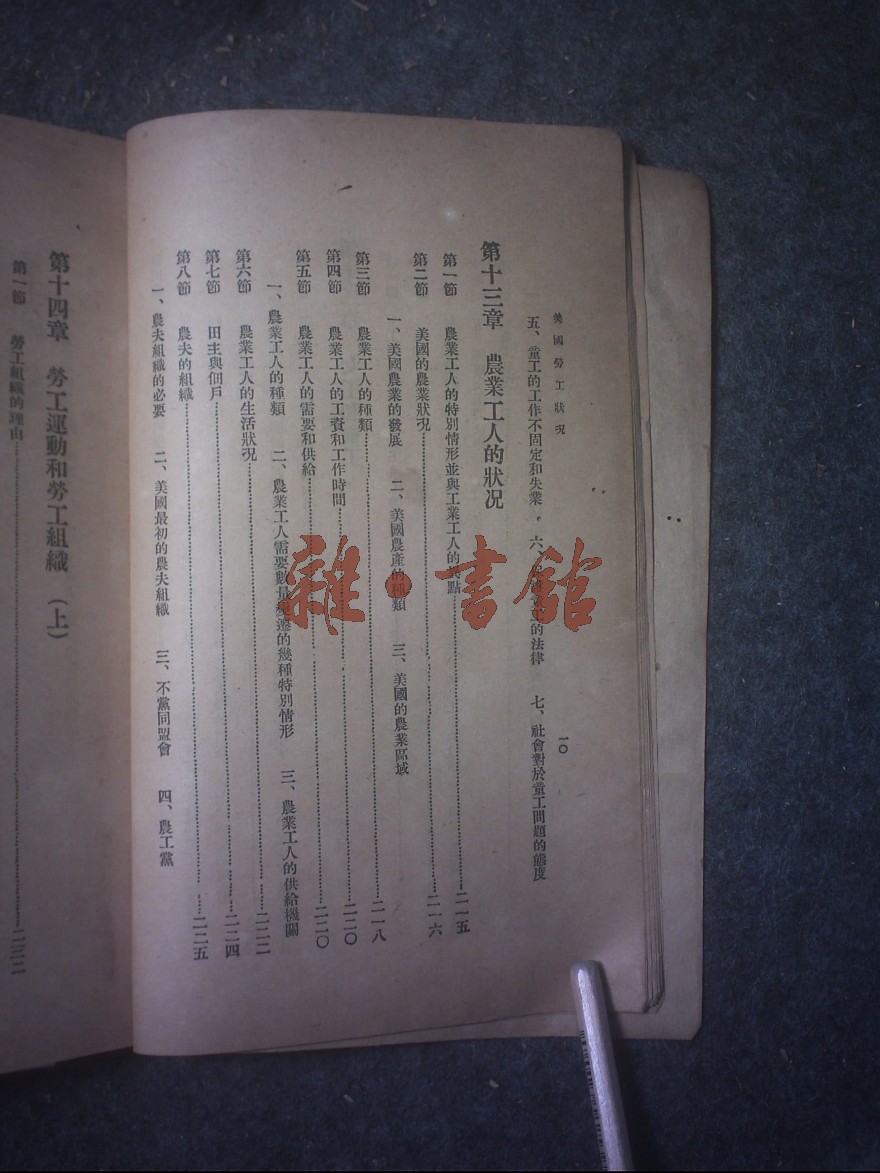 美國勞工狀況
一〇
五、童工的工作不固定和失業 六、保護童工的法律 七、社會對於童工問題的態度
第十三章 農業工人的狀況
第一節 農業工人的特別情形並與工業工人的異點……二一五
第二節 美國的農業狀況……二一六
一、美國農業的發展 二、美國農產的種類 三、美國的農業區域
第三節 農業工人的種類……二一八
第四節 農業工人的工資和工作時間……二二〇
第五節 農業工人的需要和供給……二二〇
一、農業工人的種類 二、農業工人需要數量變遷的幾種特別情形 三、農業工人的供給機關
第六節 農業工人的生活狀況……二二二
第七節 田主與佃戶……二二四
第八節 農夫的組織……二二五
一、農夫組織的必要 二、美國最初的農夫組織 三、不黨同盟會 四、農工黨
第十四章 勞工運動和勞工組織（上）
第一節 勞工組織的理由……二三二
雜·書館